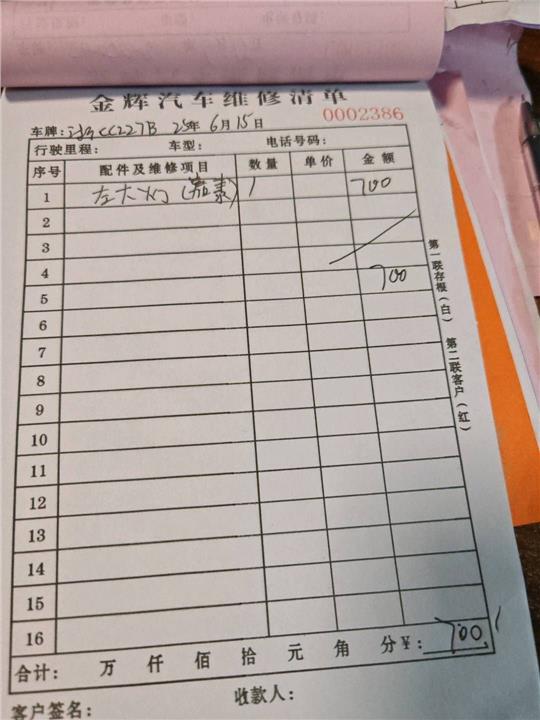 金辉汽车维修清单
0002386
车牌: CC227B 25年 6月15日
行驶里程: 车型: 电话号码:
序号 配件及维修项目 数量 单价 金额
1 左大灯 1 700
2
3
4 700
5
6
7
8
9
10
11
12
13
14
15
16
合计: 万 仟 佰 拾 元 角 分¥: 700
客户签名: 收款人:
第一联存根(白) 第二联客户(红)